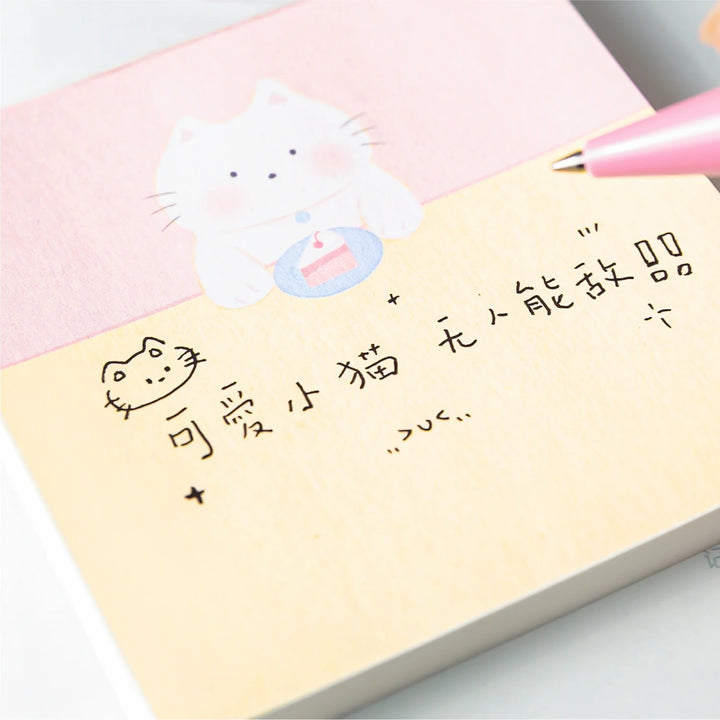 可愛小猫 无人能敌!!
..>u<..